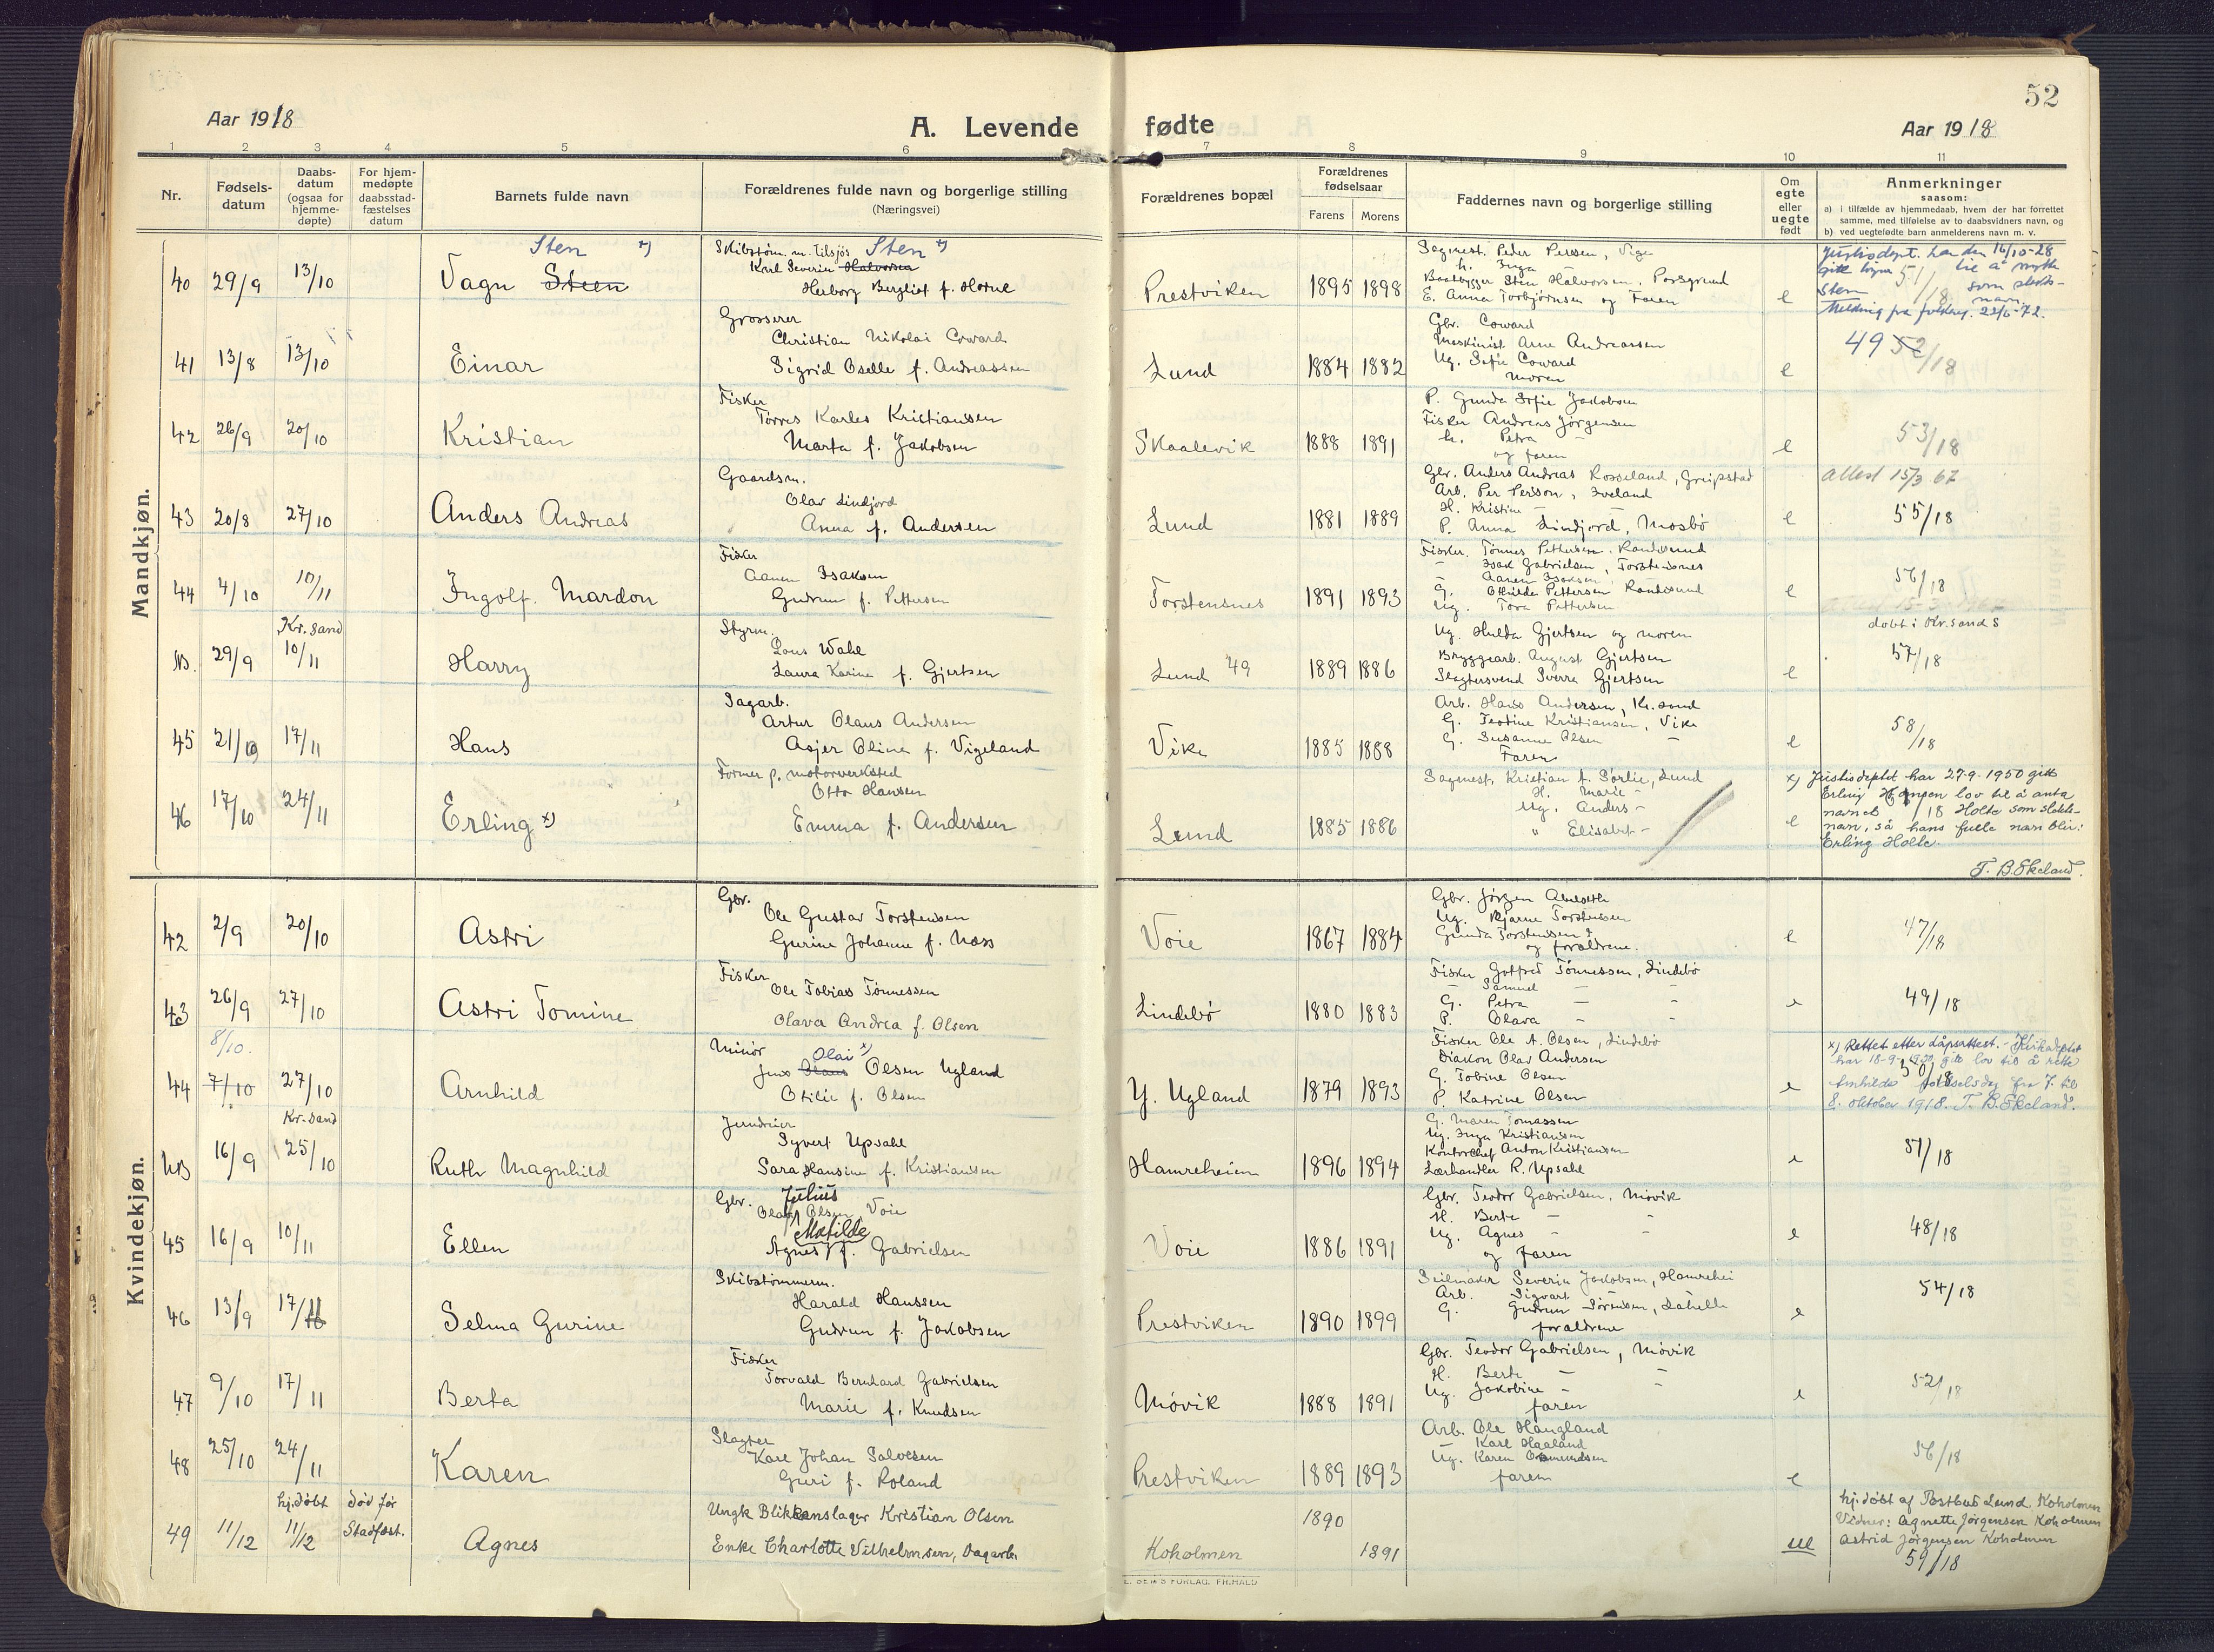 52
Aar 1918
A. Levende fødte
Aar 1918
1 2 3 4 5 6 7 8 9 10 11
Nr.
Fødsels-
datum
Daabs-
datum
(ogsaa for
hjemme-
døpte)
For hjem-
medøpte
daabsstad-
fæstelses
datum
Barnets fulde navn
Forældrenes fulde navn og borgerlige stilling
(Næringsvei)
Forældrenes bopæl
Forældrenes
fødselsaar
Farens Morens
Faddernes navn og borgerlige stilling
Om
egte
eller
uegte
født
Anmerkninger
saasom:
a) i tilfælde av hjemmedaab, hvem der har forrettet
samme, med tilføielse av to daabsvidners navn, og
b) ved uegtefødte barn anmelderens navn m. v.
Mandkjøn.
40 29/9 13/10
Sten x)
Vagn Steen
Skibstøm. m. tilsjøs Sten x)
Karl Severin Halvorsen
Herborg Bergliot f. Horne
Prestviken 1895 1898
Sagmest. Peder Persen, Vige
h. Inga
Baatbygger Sten Halvorsen, Porsgrund
E. Anna Torbjørnsen og Faren
e
Justisdept. har den 16/10-28
gitt løyve til å nytte
Sten som slekts-
navn.
51/18
Melding fra folkereg. 22/6-72.
41 13/8 13/10
Einar
Grosserer
Christian Nikolai Coward
Sigrid Oselle f. Andreassen
Lund 1884 1882
Gbr. Coward
Maskinist Arne Andreassen
Ug. Sofie Coward
moren
e
49 52/18
42 26/9 20/10
Kristian
Fisker
Torres Karles Kristianssen
Marta f. Jakobsen
Skaalevik 1888 1891
P. Gunda Sofie Jakobsen
Fisker Andreas Jørgensen
h. Petra —
og faren
e
53/18
43 20/8 27/10
Anders Andreas
Gaardsm.
Olav Lindjord
Anna f. Andersen
Lund 1881 1889
Gbr. Anders Andreas Rosseland, Greipstad
Arb. Per Persson, Iveland
H. Kristine — —
P. Anna Lindjord, Mosbö
e
Attest 15/3 67
55/18
44 4/10 10/11
Ingolf Mardon
Fisker
Aanen Isaksen
Gudrun f. Pettersen
Torstensnes 1891 1893
Fisker. Tønnes Pettersen, Randesund
— Isak Gabrielsen, Torstensnes
— Aanen Isaksen,
G. Othilde Pettersen Randesund
Ug. Tora Pettersen
e
56/18
NB. 29/9 Kr. sand 10/11
Harry
Styrm.
Lous Wahl
Laura Karine f. Gjertsen
Lund 49 1889 1886
Ug. Hulda Gjertsen og moren
Bryggearb. August Gjertsen
Slagtersvend Sverre Gjertsen
e
døbt i Kr.sand S
57/18
45 21/10 17/11
Hans
Sagarb.
Artur Olaus Andersen
Asjer Oline f. Vigeland
Vike 1885 1888
Arb. Hans Andersen, Kr. sand
G. Teodine Kristiansen, Vike
G. Susanne Olsen —
Faren
e
58/18
46 17/10 24/11
Erling x)
Former p. motorverksted
Otto Hansen
Emma f. Andersen
Lund 1885 1886
Sagmest. Kristian f. Sörlie, Lund
H. Marie —
Ug. Anders —
" Elisabet —
e
x) Justisdeptet har 27-9-1950 gitt
Erling Hansen lov til å anta
navnet Holte som slekts-
navn, så hans fulle navn blir:
Erling Holte.
T. B. Ekeland.
Kvindekjøn.
42 2/9 20/10
Astri
Gbr.
Ole Gustav Torstensen
Gurine Johanne f. Næss
Voie 1867 1884
Gbr. Jörgen Abelseth
Ug. Bjarne Torstensen
Gunda Torstensen
og forældrene.
e
47/18
43 26/9 27/10
Astri Tomine
Fisker
Ole Tobias Tönnessen
Olava Andrea f. Olsen
Lindebö 1880 1883
Fisker Gotfred Tönnessen, Lindebö
— Samuel —
G. Petra — —
P. Olava — —
e
49/18
44 8/10. 7/10 27/10
Arnhild
Minör Olai x)
Jens Olaus Olsen Ugland
Otilie f. Olsen
Y. Ugland 1879 1893
Fisker Ole A. Olsen, Lindebö
Diakon Olav Andersen
G. Tobine Olsen
P. Katrine Olsen
e
x) Rettet etter dåpsattest. - Kirkedeptet
har 18-9-1950 gitt lov til å rette
Arnhilds fødselsdag fra 7. til
8. oktober 1918. T. B. Ekeland.
50/18
NB 16/9 Kr. sand 25/10
Ruth Magnhild
Jerndreier
Syvert Upsahl
Sara Hansine f. Kristiansen
Hamreheien 1896 1894
G. Maren Tomassen
Ug. Inga Kristiansen
Kontorchef Anton Kristiansen
Lærhandler R. Upsahl
e
51/18
45 16/9 10/11
Ellen
Gbr. Julius
Olaf Olsen, Voie
Matilde
Agnes f. Gabrielsen
Voie 1886 1891
Gbr. Teodor Gabrielsen, Mövik
H. Berte — —
Ug. Agnes —
og faren
e
48/18
46 13/9 17/11
Selma Gurine
Skibstömmerm.
Harald Hanssen
Gudrun f. Jakobsen
Prestviken 1890 1899
Seilmaker Severin Jakobsen, Hamrehei
Arb. Sigvart
G. Gudrun Sörensen,
forældrene
e
54/18
47 9/10 17/11
Berta
Fisker
Torvald Bernhard Gabrielsen
Marie f. Knudsen
Mövik 1888 1891
Gbr. Teodor Gabrielsen, Mövik
H. Berte — —
Ug. Jakobine — —
faren
e
52/18
48 25/10 24/11
Karen
Slagter
Karl Johan Salvesen
Guri f. Roland
Prestviken 1889 1893
Arb. Ole Haugland
— Karl Haaland
Ug. Karen Osmundsen
faren
e
56/18
49 11/12 hj.døbt 11/12
død før
Stadfæst.
Agnes
Ungk Blikkenslager Kristian Olsen
Enke Charlotte Vilhelmsen, Dagarb.
Koholmen 1890 1891
ue
hj.døbt af Postbud Lund, Koholmen
Vidner: Agnette Jørgensen Koholmen
Astrid Jørgensen Koholmen
59/18